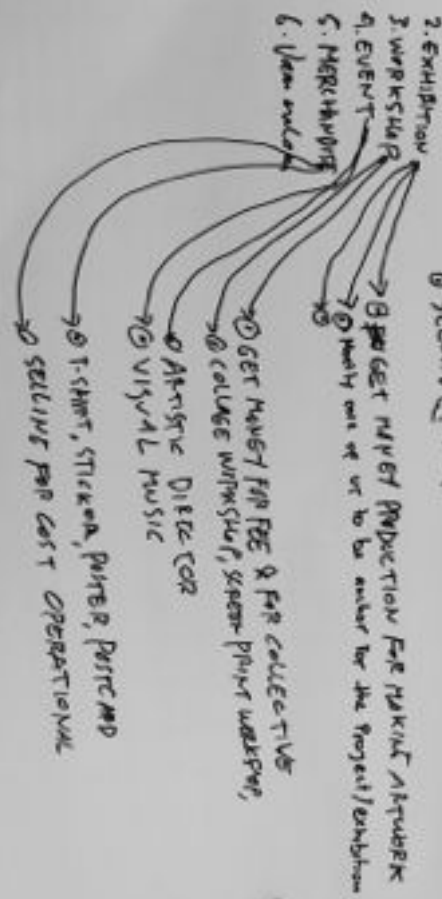 2. EXHIBITION
3. WORKSHOP
4. EVENT
5. MERCHANDISE
6.
GET MONEY PRODUCTION FOR MAKING ARTWORK
Mostly one of us to be anchor for the Project/exhibition
① GET MONEY FOR FEE & FOR COLLECTIVE
② COLLAGE WORKSHOP, SCREEN PRINT WORKSHOP,
ARTISTIC DIRECTOR
VISUAL MUSIC
T-SHIRT, STICKER, POSTER, POSTCARD
SELLING FOR COST OPERATIONAL